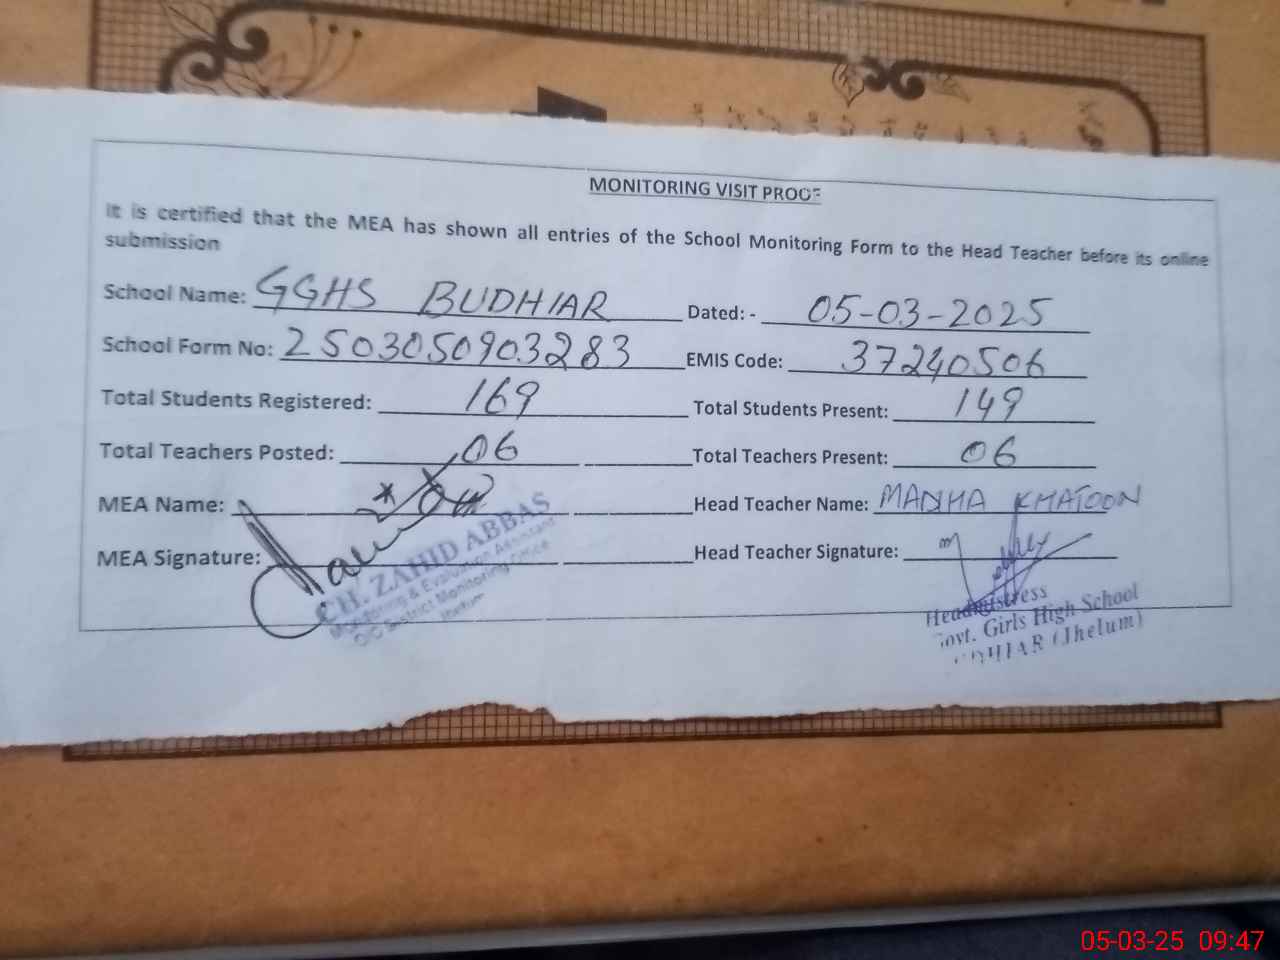 MONITORING VISIT PROOF
It is certified that the MEA has shown all entries of the School Monitoring Form to the Head Teacher before its online
submission
School Name: GGHS BUDHIAR Dated: - 05-03-2025
School Form No: 2503050903283 EMIS Code: 37240506
Total Students Registered: 169 Total Students Present: 149
Total Teachers Posted: 06 Total Teachers Present: 06
MEA Name: Head Teacher Name: MADIHA KHATOON
MEA Signature: Head Teacher Signature:
CH. ZAHID ABBAS
Monitoring & Evaluation Assistant
O/O District Monitoring Office
Jhelum
Headmistress
Govt. Girls High School
BUDHIAR (Jhelum)
05-03-25 09:47